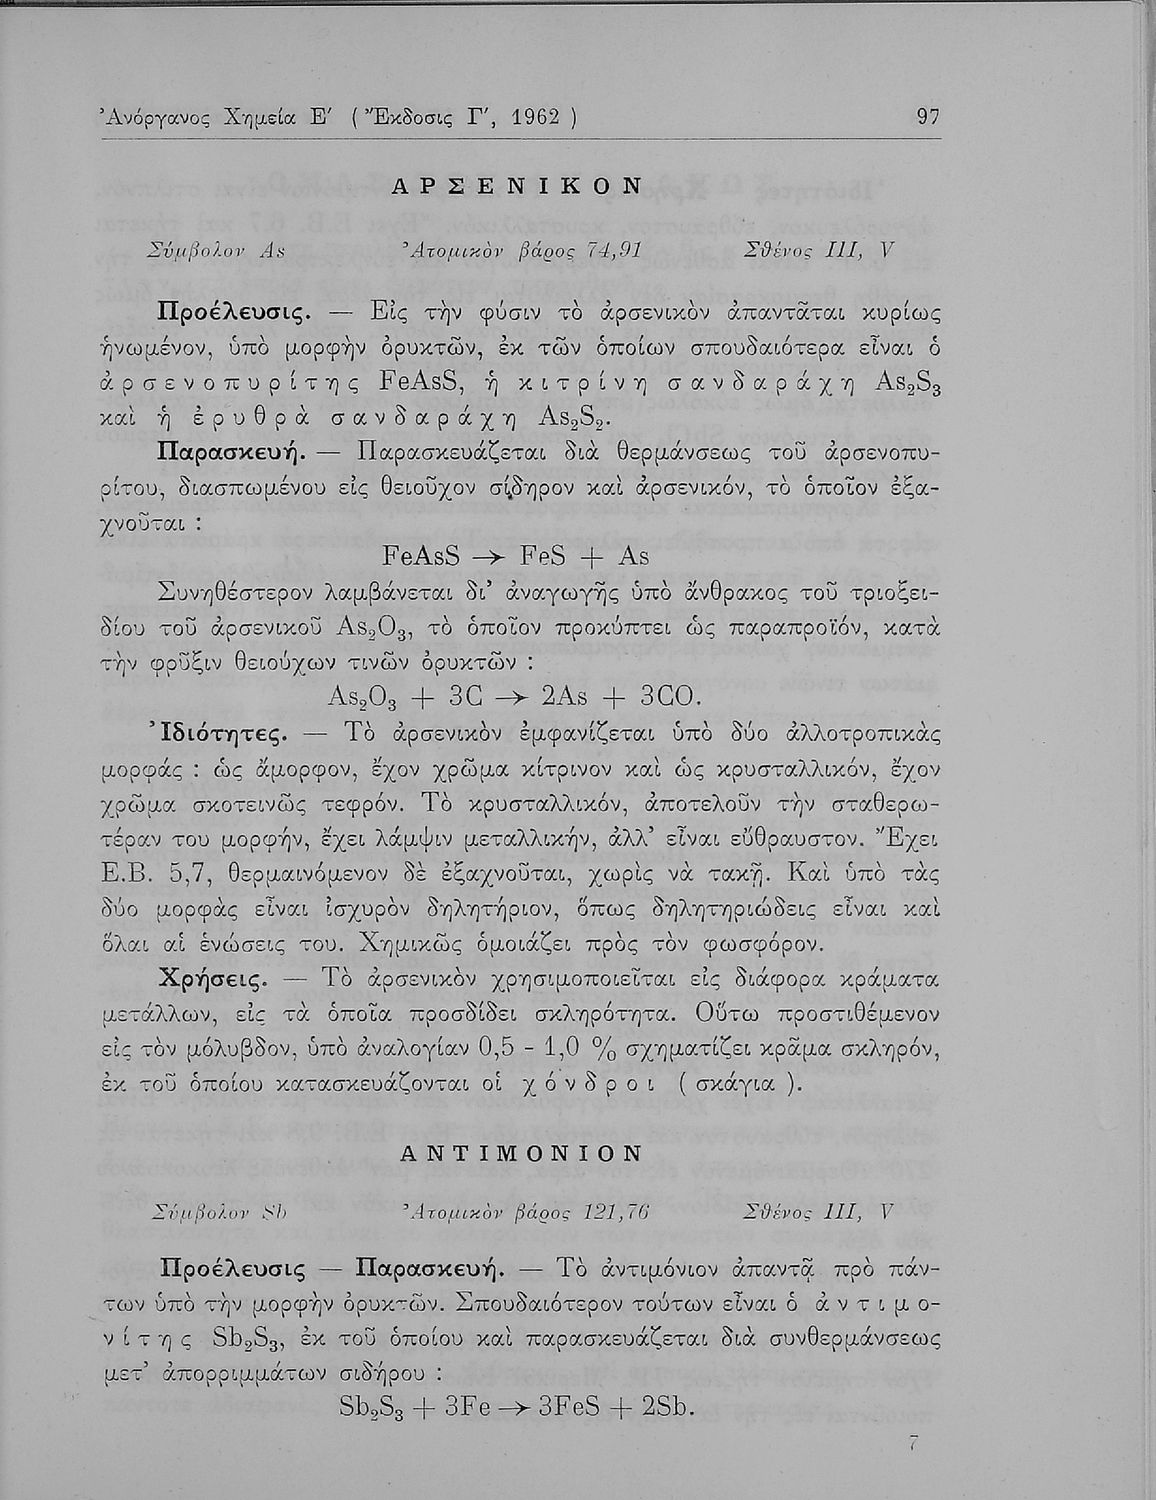 Ἀνόργανος Χημεία Ε′ ( Ἔκδοσις Γ′, 1962 ) 97
ΑΡΣΕΝΙΚΟΝ
Σύμβολον As Ἀτομικὸν βάρος 74,91 Σθένος III, V
Προέλευσις. — Εἰς τὴν φύσιν τὸ ἀρσενικὸν ἀπαντᾶται κυρίως
ἡνωμένον, ὑπὸ μορφὴν ὀρυκτῶν, ἐκ τῶν ὁποίων σπουδαιότερα εἶναι ὁ
ἀρσενοπυρίτης FeAsS, ἡ κιτρίνη σανδαράχη As₂S₃
καὶ ἡ ἐρυθρὰ σανδαράχη As₂S₂.
Παρασκευή. — Παρασκευάζεται διὰ θερμάνσεως τοῦ ἀρσενοπυ-
ρίτου, διασπωμένου εἰς θειοῦχον σίδηρον καὶ ἀρσενικόν, τὸ ὁποῖον ἐξα-
χνοῦται :
FeAsS → FeS + As
Συνηθέστερον λαμβάνεται δι’ ἀναγωγῆς ὑπὸ ἄνθρακος τοῦ τριοξει-
δίου τοῦ ἀρσενικοῦ As₂O₃, τὸ ὁποῖον προκύπτει ὡς παραπροϊόν, κατὰ
τὴν φρῦξιν θειούχων τινῶν ὀρυκτῶν :
As₂O₃ + 3C → 2As + 3CO.
Ἰδιότητες. — Τὸ ἀρσενικὸν ἐμφανίζεται ὑπὸ δύο ἀλλοτροπικὰς
μορφάς : ὡς ἄμορφον, ἔχον χρῶμα κίτρινον καὶ ὡς κρυσταλλικόν, ἔχον
χρῶμα σκοτεινῶς τεφρόν. Τὸ κρυσταλλικόν, ἀποτελοῦν τὴν σταθερω-
τέραν του μορφήν, ἔχει λάμψιν μεταλλικήν, ἀλλ’ εἶναι εὔθραυστον. Ἔχει
Ε.Β. 5,7, θερμαινόμενον δὲ ἐξαχνοῦται, χωρὶς νὰ τακῇ. Καὶ ὑπὸ τὰς
δύο μορφὰς εἶναι ἰσχυρὸν δηλητήριον, ὅπως δηλητηριώδεις εἶναι καὶ
ὅλαι αἱ ἑνώσεις του. Χημικῶς ὁμοιάζει πρὸς τὸν φωσφόρον.
Χρήσεις. — Τὸ ἀρσενικὸν χρησιμοποιεῖται εἰς διάφορα κράματα
μετάλλων, εἰς τὰ ὁποῖα προσδίδει σκληρότητα. Οὕτω προστιθέμενον
εἰς τὸν μόλυβδον, ὑπὸ ἀναλογίαν 0,5 - 1,0 % σχηματίζει κρᾶμα σκληρόν,
ἐκ τοῦ ὁποίου κατασκευάζονται οἱ χόνδροι ( σκάγια ).
ΑΝΤΙΜΟΝΙΟΝ
Σύμβολον Sb Ἀτομικὸν βάρος 121,76 Σθένος III, V
Προέλευσις — Παρασκευή. — Τὸ ἀντιμόνιον ἀπαντᾷ πρὸ πάν-
των ὑπὸ τὴν μορφὴν ὀρυκτῶν. Σπουδαιότερον τούτων εἶναι ὁ ἀντιμο-
νίτης Sb₂S₃, ἐκ τοῦ ὁποίου καὶ παρασκευάζεται διὰ συνθερμάνσεως
μετ’ ἀπορριμμάτων σιδήρου :
Sb₂S₃ + 3Fe → 3FeS + 2Sb.
7